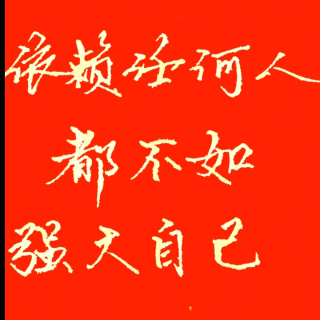 依赖任何人
都不如
强大自己